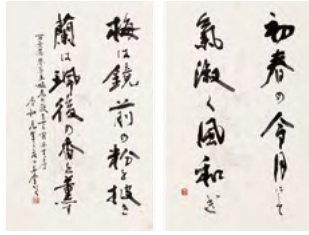 初春の令月にして
氣淑く風和ぎ
梅は鏡前の粉を披き
蘭は珮後の香を薫す